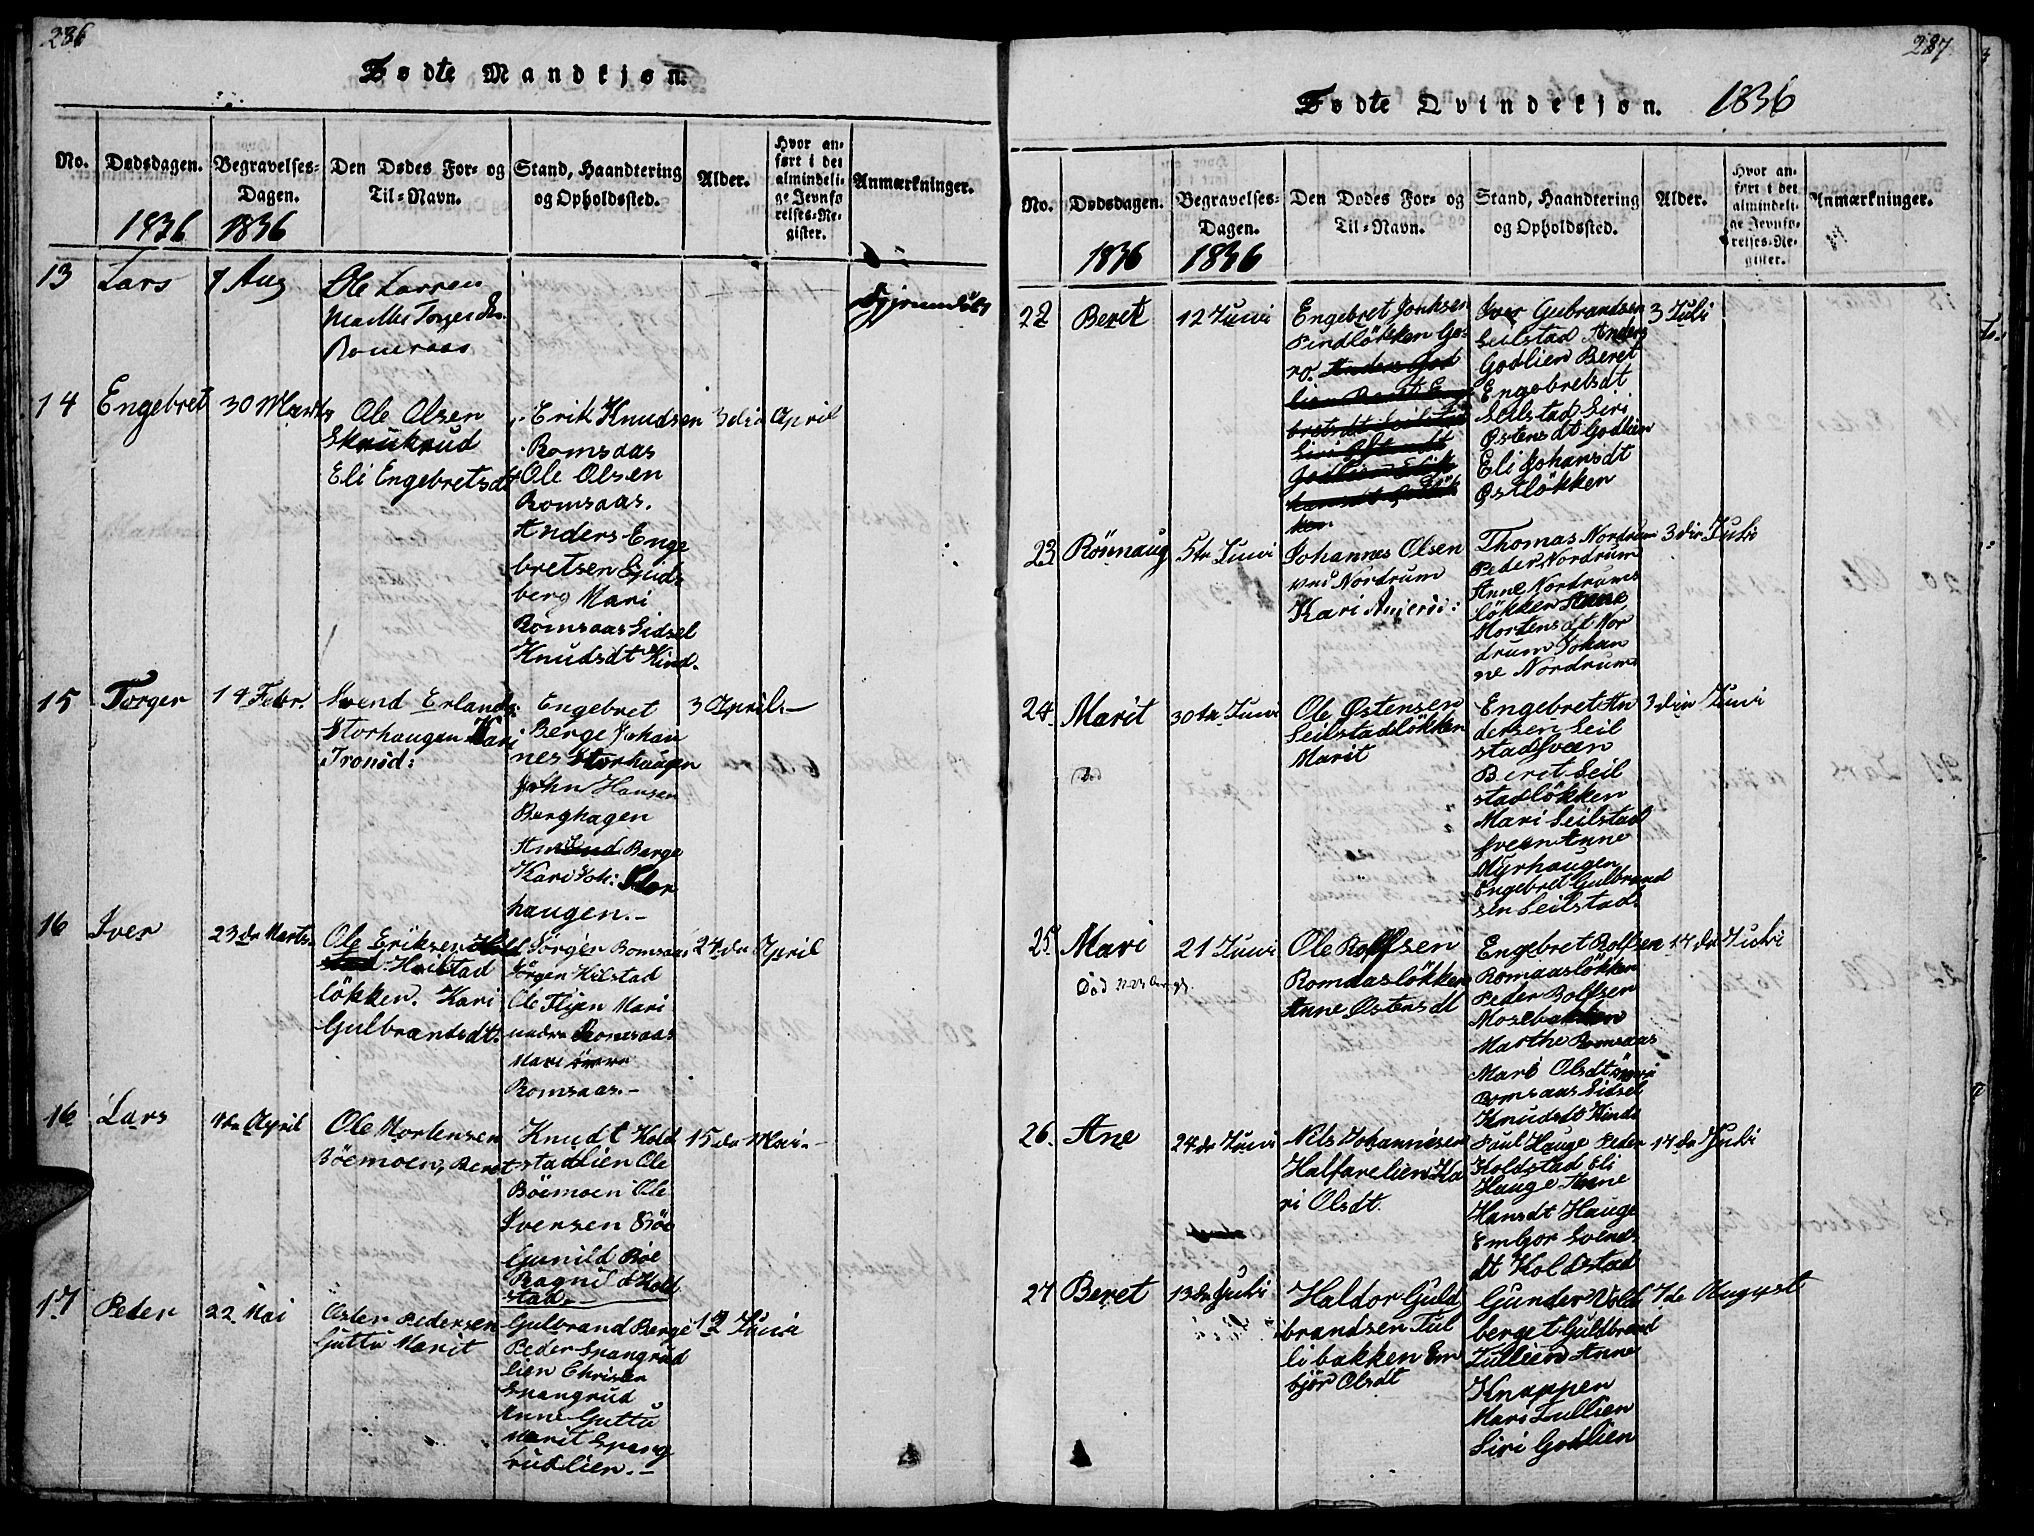 286
Fødte Mandkjøn.
No.
Dødsdagen.
Begravelses-
Dagen.
Den Dødes For- og
Til-Navn.
Stand, Haandtering
og Opholdssted.
Alder.
Hvor an-
ført i det
almindeli-
ge Jevnfø
relses-Re-
gister.
Anmærkninger.
1836 1836
13 Lars 7 Aug
Ole Larsen
Romsaas
14 Engebret 30 Marts
Ole Olsen
Skrukrud
Eli Engebretsdt
Erik Knudsen
Romsaas
Ole Olsen
Romsaas.
Anders Enge
bretsen
berg Mari
Romsaas Sidsel
Knudsdt Kind.
3die April
15 Torger 14 Febr.
Svend Erlands:
Storhaugen Kari
Engebret
Berge Johan
nes Storhaugen
John Hansen
Berghagen
Berge
Kari Joh: Stor
haugen.-
3 April.-
16 Iver 23de Marts.
Ole Eriksen
Kvilstad
løkken. Kari
Gulbrandsdt.
Jørgen Romsaas
Jørgen Kilstad
Ole Mari
Romsaas
Mari
Romsaas.-
24de April
16 Lars 4de April
Ole Mortensen
Böemoen, Beret
Knudt Kold
stadlien Ole
Böemoen Ole
Iversen Böe
Gunild Böe
Ragnild Kold
stad.
15de Mai.-
17 Peder 22 Mai
Østen Pedersen
Guttu Marit
Gulbrand Berge
Peder Spangrud
lien Christen
Spangrud
Anne Guttu
Marit Spang
rudlien.-
12 Juni
287
Fødte Qvindekjøn. 1836
No.
Dødsdagen.
Begravelses-
Dagen.
Den Dødes For- og
Til-Navn.
Stand, Haandtering
og Opholdssted.
Alder.
Hvor an-
ført i det
almindeli-
ge Jevnfø-
relses-Re-
gister.
Anmærkninger.
1836 1836
22 Beret 12 Juni
Engebret
Iver Gubrandsen
Seilstad Anders
Godlien Beret
Engebretsdt
Seilstad Siri
Østensdt Godlien
Eli Johansdt
Østløkken
3 Juli
23 Rönnaug 5te Juni
Johannes Olsen
Nordrum
Kari
Thomas Nordrum
Peder Nordrum
Anne Nordrums
løkken Anne
Mortensdt Nor
drum Johan
ne Nordrum
3die Juli
24. Marit 30te Juni
Ole Østensen
Seilstadløkken
Marit
Engebret An
dersen Seil
stadsveen
Berit Seil
stadløkken
Mari Seilstad
sveen Anne
Myrhaugen
Engebret Gulbrand
sen Seilstad.
3die Juli
25. Mari 21 Juni
Død
Ole Rolfsen
Romsaasløkken
Anne Østensdt
Engebret Rolfsen
Romsaasløkken
Peder Rolfsen
Mosebakken
Marthe Romsaas
Mari Olsdt
Romsaas Sidsel
Knudsdt Kinds
17de Juli
26. Ane 24de Juni
Nils Johannesen
Halfarelien Ka
ri Olsdt.
Poul Hauge Peder
Koldstad Eli
Hauge Anne
Hansdt Hauge
Embjør Svends
dt Koldstad
17de Juli
27 Beret 13de Juli
Haldor Guld
brandsen Tul
libakken Em
bjør Olsdt
Gunder Vold
berget Guldbrand
Tullien Anne
Knappen
Mari Tullien
Siri Godlien
7de August